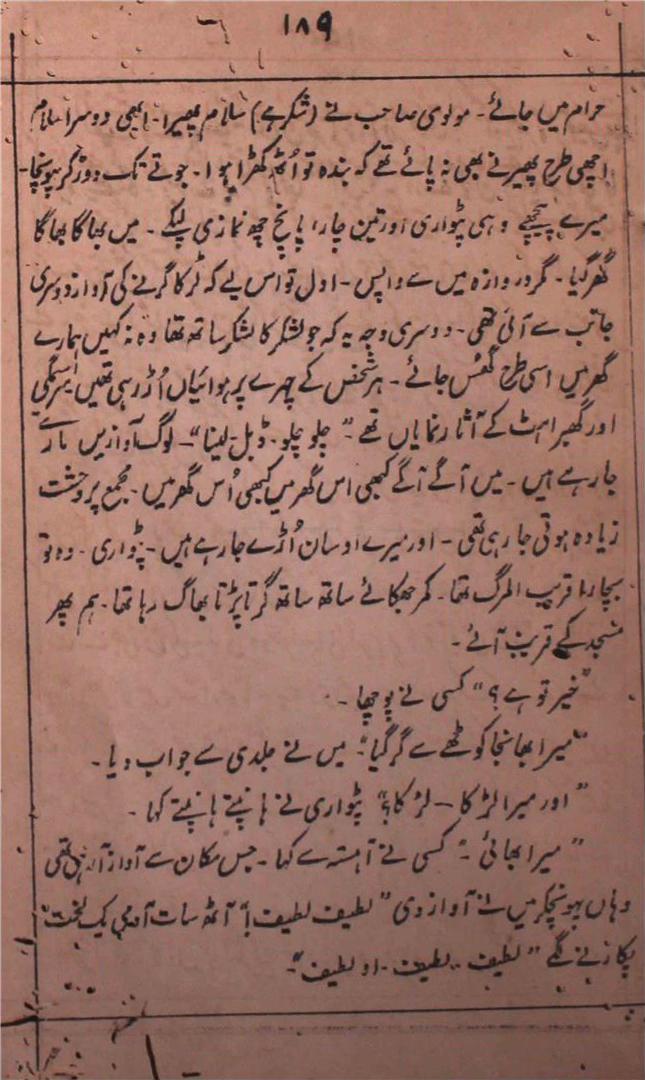 ۱۸۹
حرام میں جائے۔ مولوی صاحب نے (شکر ہے) سلام پھیرا۔ ابھی دوسرا سلام
اچھی طرح پھیرنے بھی نہ پائے تھے کہ بندہ تو اُٹھ کھڑا ہوا۔ جوتے تک دوڑ کر پہونچا۔
میرے پیچھے وہی پٹواری اور تین چار، پانچ چھ نمازی لپکے۔ میں بھاگا بھاگا
گھر گیا۔ گر دروازہ میں سے واپس۔ اول تو اس لیے کہ لڑکا گرنے کی آواز دوسری
جانب سے آئی تھی۔ دوسری وجہ یہ کہ جو لشکر کا لشکر ساتھ تھا وہ نہ کہیں ہمارے
گھر میں اسی طرح گھُس جائے۔ ہر شخص کے چہرے پر ہوائیاں اُڑ رہی تھیں سراسیمگی
اور گھبراہٹ کے آثار نمایاں تھے۔ "چلو چلو۔ ڈبل۔ لینا"۔ لوگ آوازیں مارے
جا رہے ہیں۔ میں آگے آگے کبھی اس گھر میں کبھی اُس گھر میں۔ مجمع پر وحشت
زیادہ ہوتی جا رہی تھی۔ اور میرے اوسان اُڑے جا رہے ہیں۔ پٹواری۔ وہ تو
بچارا قریب المرگ تھا۔ کمر جھکائے ساتھ ساتھ گرتا پڑتا بھاگ رہا تھا۔ ہم پھر
مسجد کے قریب آئے۔
"خیر تو ہے؟" کسی نے پوچھا۔
"میرا بھانجا کوٹھے سے گر گیا"۔ میں نے جلدی سے جواب دیا۔
"اور میرا لڑکا – لڑکا؟" پٹواری نے ہانپتے ہانپتے کہا۔
"میرا بھائی"۔ کسی نے آہستہ سے کہا۔ جس مکان سے آواز آ رہی تھی
وہاں پہونچکر میں نے آواز دی "لطیف لطیف!" آٹھ سات آدمی یک لخت
پکارنے لگے "لطیف۔۔ لطیف۔ او لطیف"۔